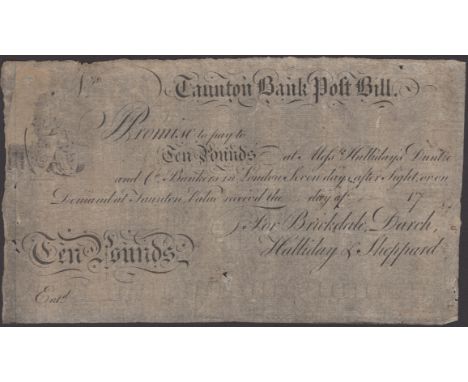 No.
Taunton Bank Post Bill.
I Promise to pay to
Ten Pounds at Messrs. Hallidays Duntze
and Co. Bankers in London Seven days after Sight, or on
Demand at Taunton Value received the day of 17
For Brickdale, Darch,
Halliday & Sheppard
Ten Pounds
Entd.